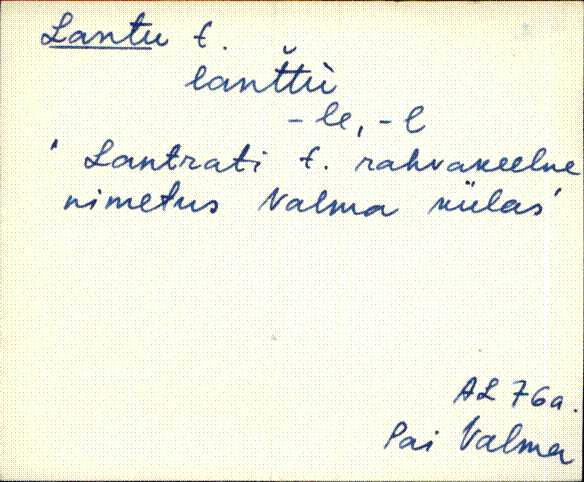 Lantu t.
lanťťù
-le, -l
' Lantrati t. rahvakeelne
nimetus Valma külas'
AL 76a.
Pai Valma